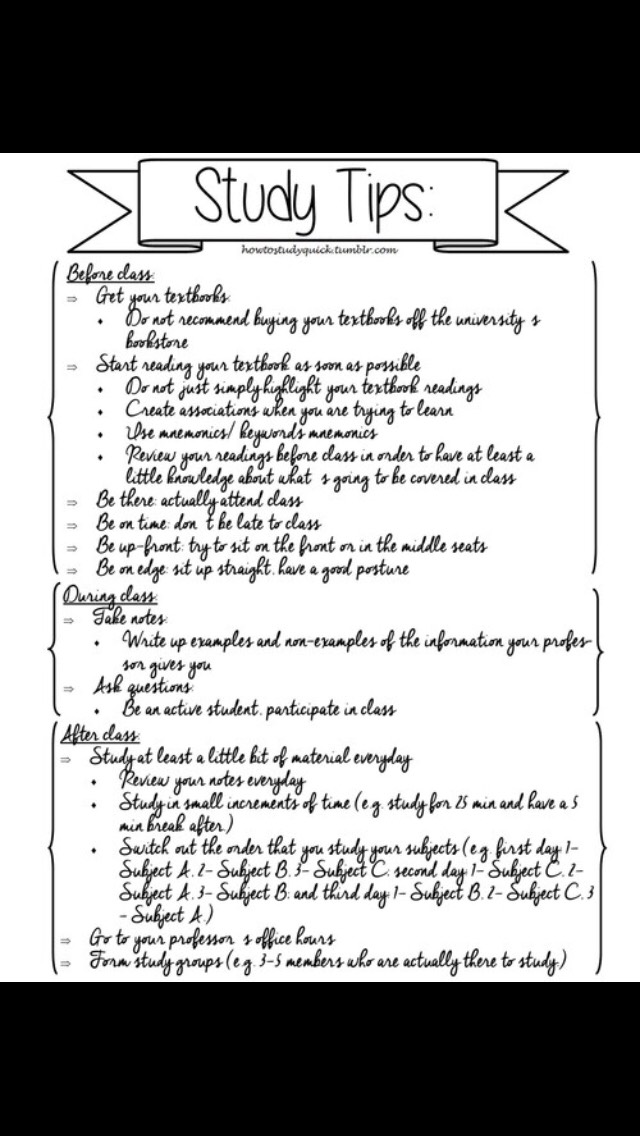 Study Tips:
howtostudyquick.tumblr.com
Before class:
⇒ Get your textbooks:
• Do not recommend buying your textbooks off the university s
bookstore
⇒ Start reading your textbook as soon as possible
• Do not just simply highlight your textbook readings
• Create associations when you are trying to learn
• Use mnemonics/ keywords mnemonics
• Review your readings before class in order to have at least a
little knowledge about what s going to be covered in class
⇒ Be there: actually attend class
⇒ Be on time: don t be late to class
⇒ Be up-front: try to sit on the front or in the middle seats
⇒ Be on edge: sit up straight, have a good posture
During class:
⇒ Take notes:
• Write up examples and non-examples of the information your profes-
sor gives you
⇒ Ask questions:
• Be an active student, participate in class
After class:
⇒ Study at least a little bit of material everyday
• Review your notes everyday
• Study in small increments of time (e.g. study for 25 min and have a 5
min break after.)
• Switch out the order that you study your subjects (e.g. first day 1-
Subject A, 2- Subject B, 3- Subject C; second day 1- Subject C, 2-
Subject A, 3- Subject B; and third day 1- Subject B, 2- Subject C, 3
- Subject A.)
⇒ Go to your professor s office hours
⇒ Form study groups (e.g. 3-5 members who are actually there to study.)